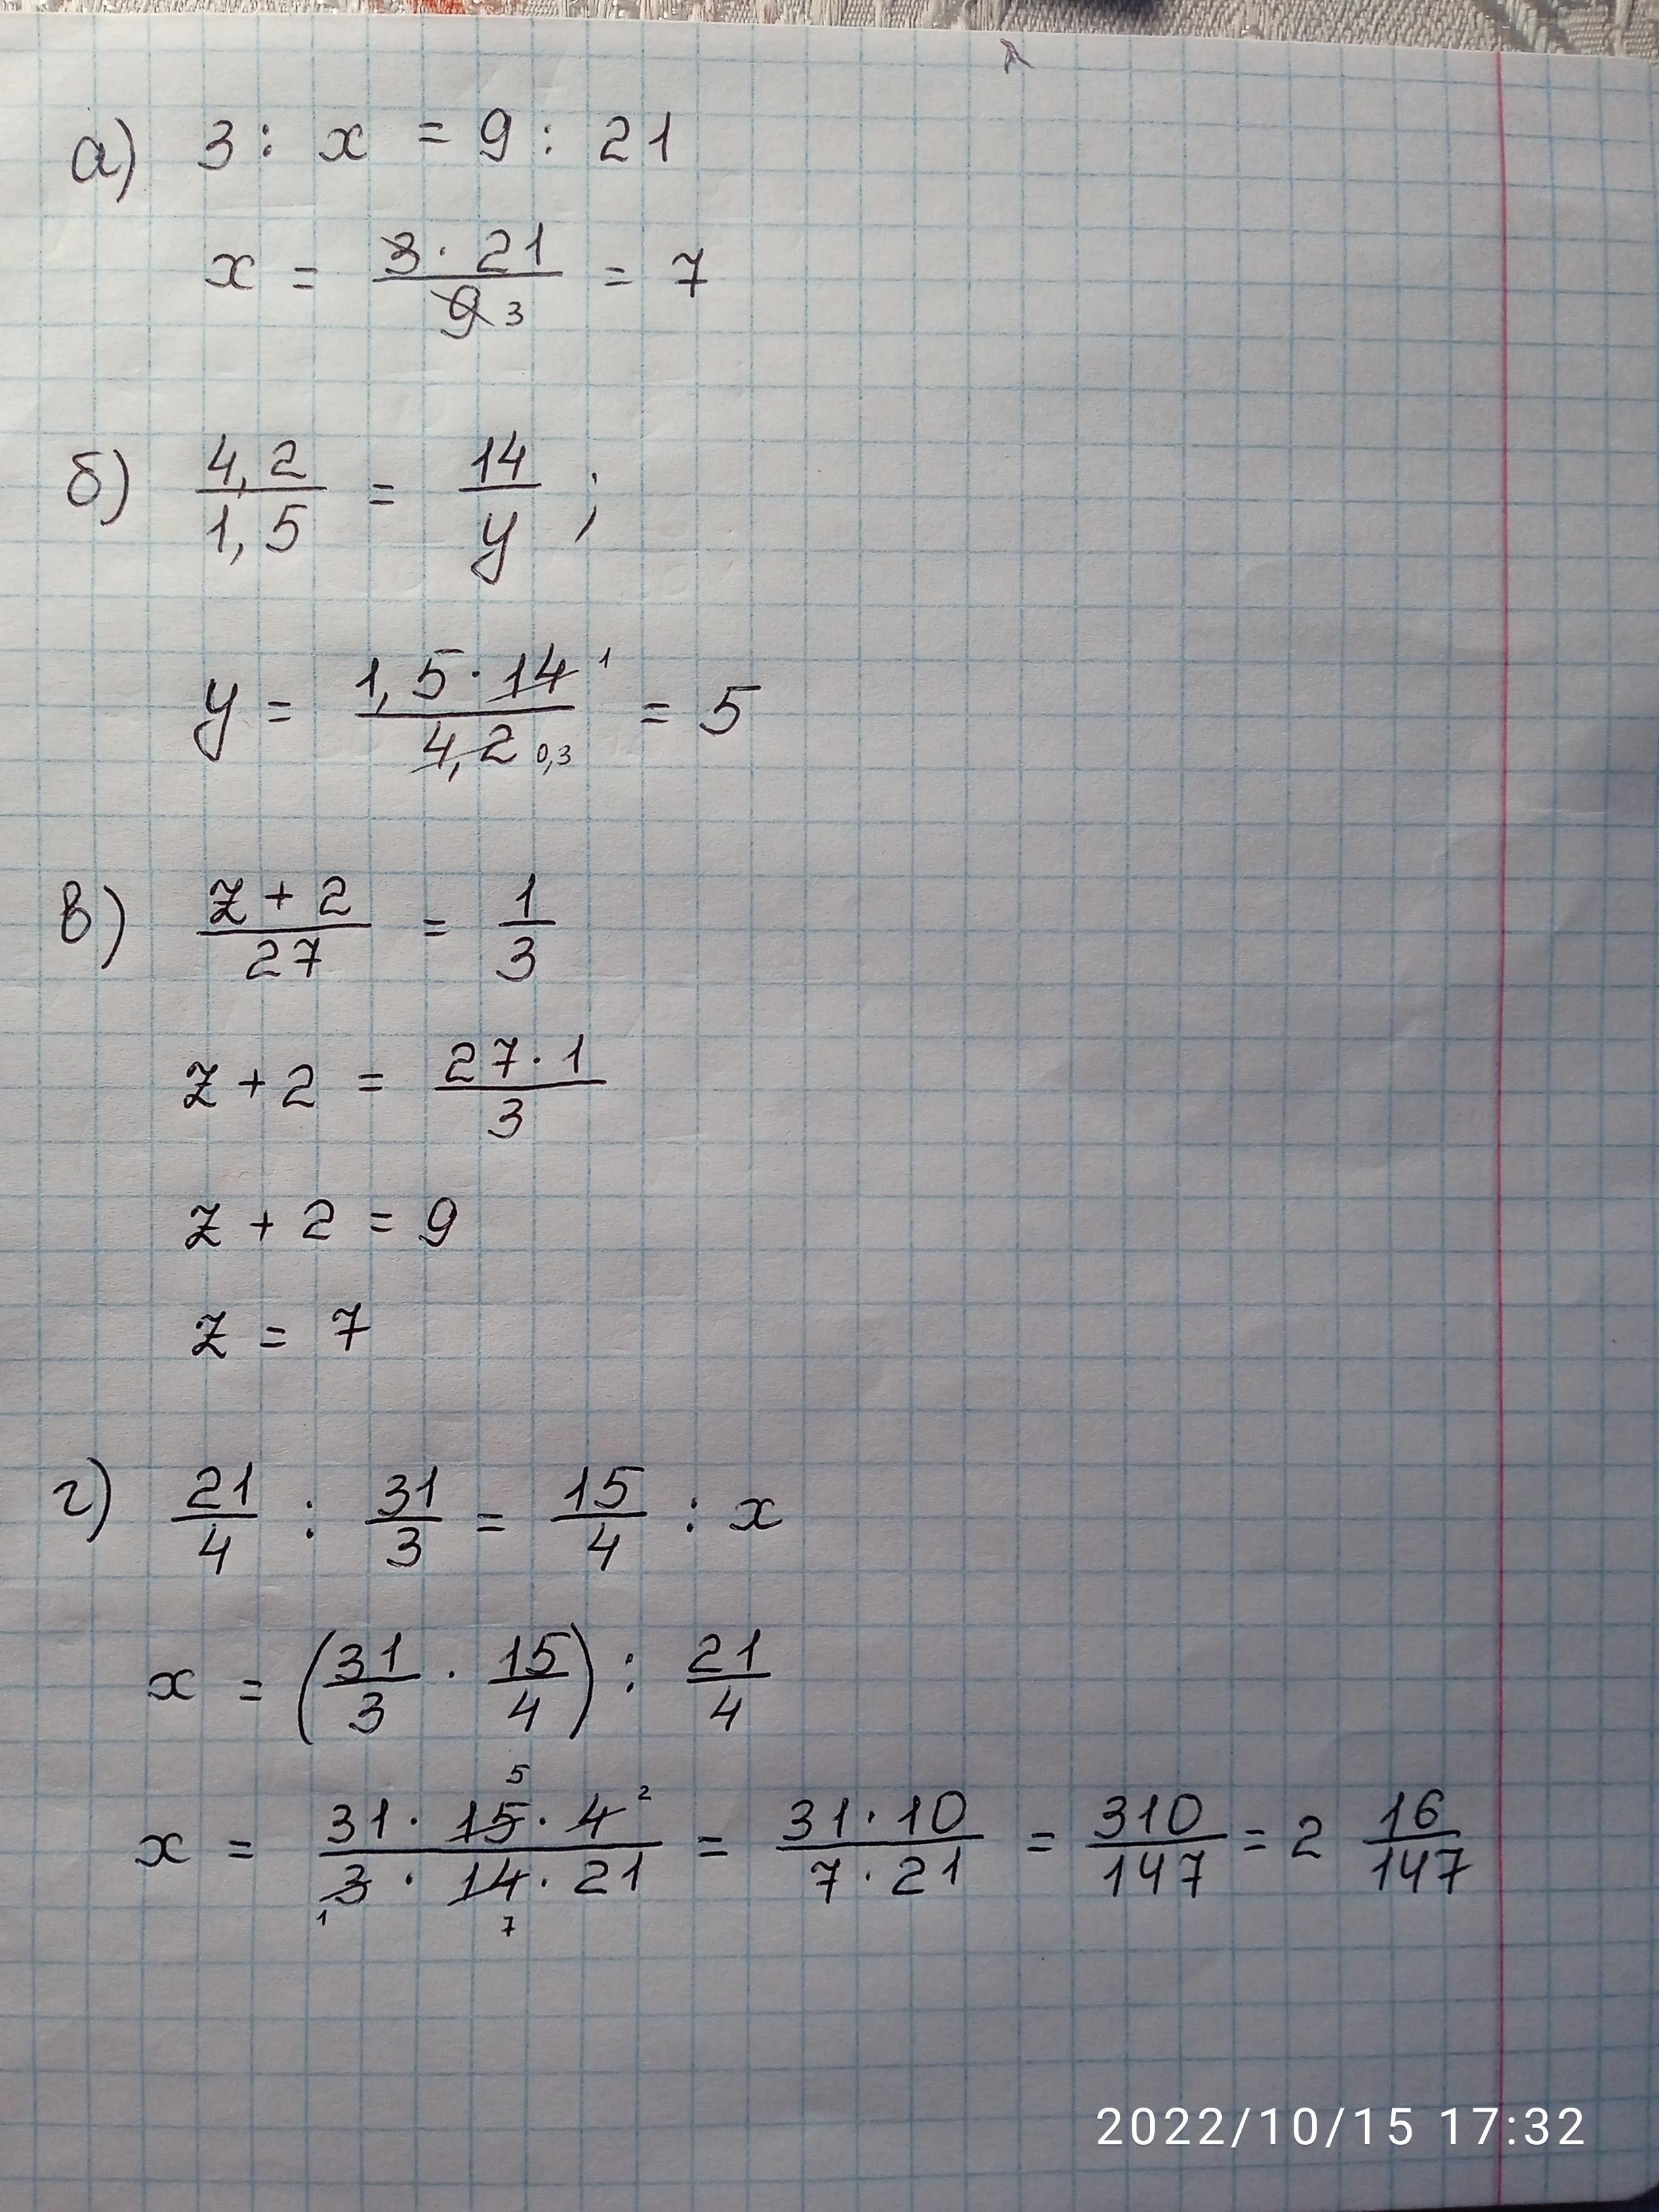 а) 3 : x = 9 : 21
x = 3 · 21 / 9 3 = 7
б) 4,2 / 1,5 = 14 / y ;
y = 1,5 · 14 1 / 4,2 0,3 = 5
в) z + 2 / 27 = 1 / 3
z + 2 = 27 · 1 / 3
z + 2 = 9
z = 7
г) 21/4 : 31/3 = 15/4 : x
x = (31/3 · 15/4) : 21/4
x = 31 · 15 5 · 4 2 / 3 1 · 14 7 · 21 = 31 · 10 / 7 · 21 = 310 / 147 = 2 16/147
2022/10/15 17:32